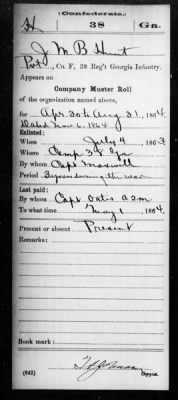 Confederate.
H 38 Ga.
J M B Hunt
Pvt, Co. F, 38 Reg't Georgia Infantry.
Appears on
Company Muster Roll
of the organization named above,
for Apr 30 to Aug 31, 1864.
Dated Nov 6, 1864
Enlisted:
When July 9, 1863.
Where Camp 38 Ga
By whom Capt Maxwell
Period 3 years or during the war
Last paid:
By whom Capt
To what time May 1, 1864.
Present or absent Present
Remarks:
Book mark:
(642) Copyist.